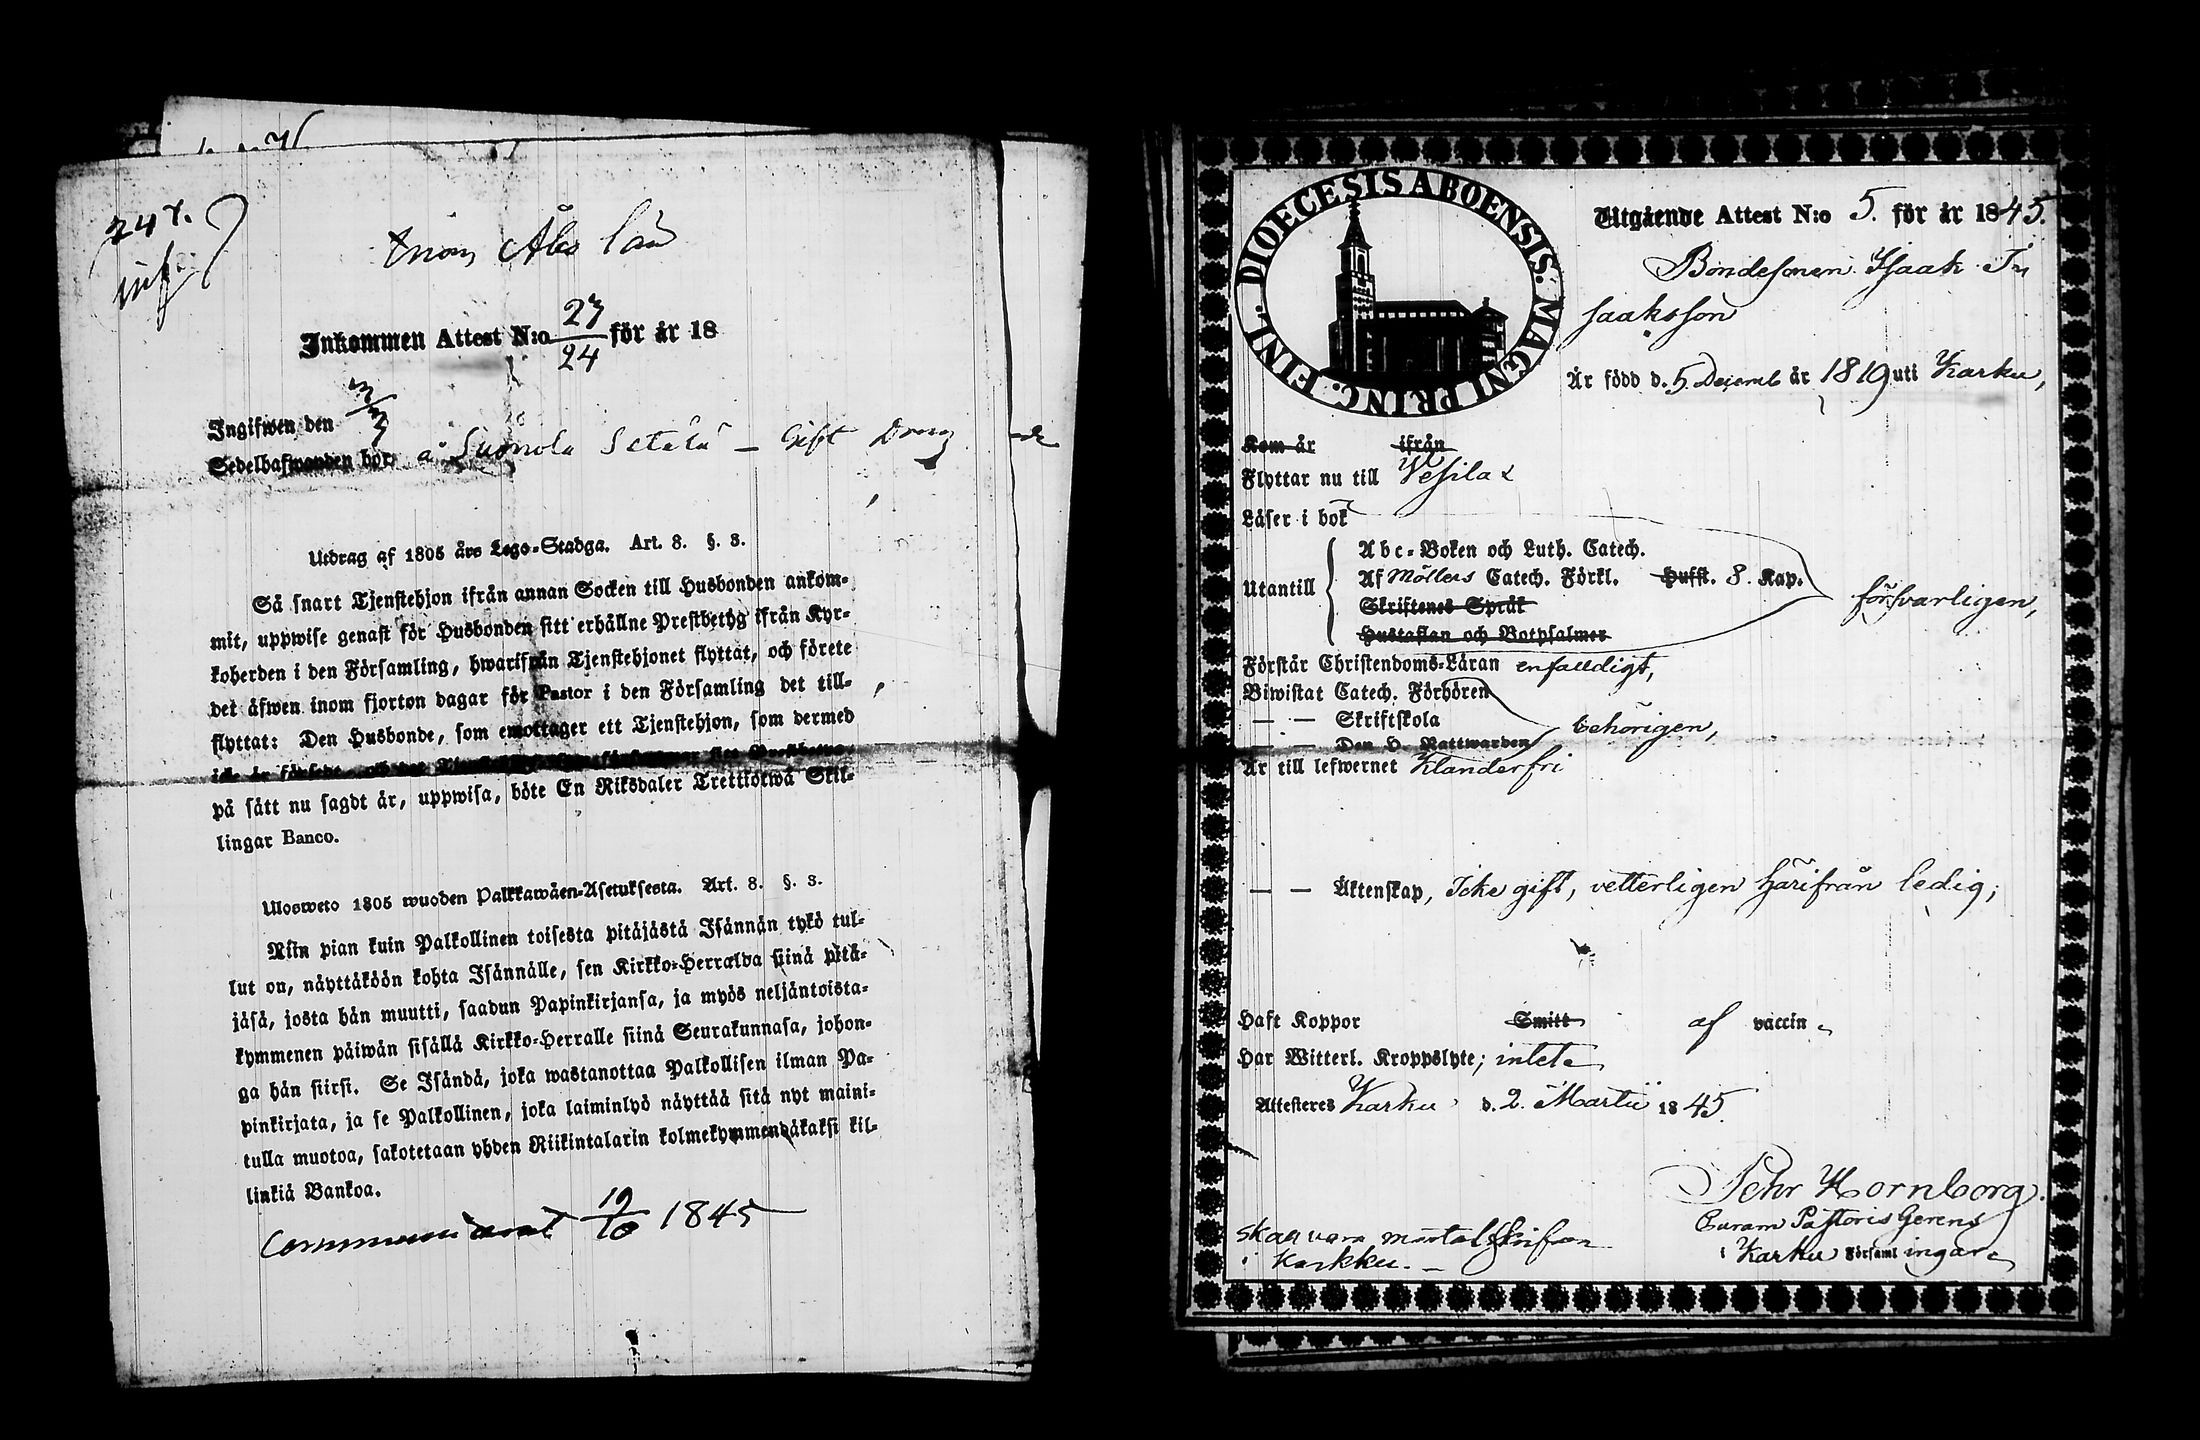 247.
inf.
Åbo län
Inkommen Attest N:o 27/24 för år 18
Ingifwen den 3/3
Sedelhafwanden bor å Suomola Setälä – Gift Dräng
Utdrag af 1805 års Lego-Stadga. Art. 8. §. 3.
Så snart Tjenstehjon ifrån annan Socken till Husbonden ankom-
mit, uppwise genast för Husbonden sitt erhållne Prestbetyg ifrån Kyr-
koherden i den Församling, hwarifrån Tjenstehjonet flyttat, och förete
det äfwen inom fjorton dagar för Pastor i den Församling det till-
flyttat: Den Husbonde, som emottager ett Tjenstehjon, som dermed
icke är försedt, och det
på sätt nu sagdt är, uppwisa, böte En Riksdaler Trettiotwå Skil-
lingar Banco.
Ulosweto 1805 wuoden Palkkawäen-Asetuksesta. Art. 8. §. 3.
Niin pian kuin Palkollinen toisesta pitäjästä Isännän tykö tul-
lut on, näyttäköön kohta Isännälle, sen Kirkko-Herralda siinä pitä-
jäsä, josta hän muutti, saadun Papinkirjansa, ja myös neljäntoista-
kymmenen päiwän sisällä Kirkko-Herralle siinä Seurakunnasa, johon-
ga hän siirsi. Se Isändä, joka wastanottaa Palkollisen ilman Pa-
pinkirjata, ja se Palkollinen, joka laiminlyö näyttää sitä nyt maini-
tulla muotoa, sakotetaan yhden Riikintalarin kolmekymmendäkaksi kil-
linkiä Bankoa.
19/10 1845
DIOECESIS ABOENSIS. MAGNI PRINC. FINL.
Utgående Attest N:o 5. för år 1845.
Bondesonen Isaak I
saaksson
Är född d. 5 Decemb år 1819 uti Karku,
Kom år ifrån
Flyttar nu till Vesilax
Läser i bok
Utantill
Abc-Boken och Luth. Catech.
Af Möllers Catech. Förkl. Hufst. 8. Kap.
Skriftenes Språk
Hustaflan och Botpsalmer
försvarligen,
Förstår Christendoms-Läran enfalldigt,
Biwistat Catech. Förhören
— — Skriftskola
— — Den H. Nattwarden
behörigen,
Är till lefwernet Klanderfri
— — Äktenskap, Icke gift, vetterligen härifrån ledig;
Haft Koppor Smitt af vaccin
Har Witterl. Kroppslyte; intet
Attesteres Karku d. 2. Martii 1845.
Pehr Hornborg.
Curam Pastoris Gerens
i Karku Församlingar
skall vara mantalskrifven
i Karkku. —